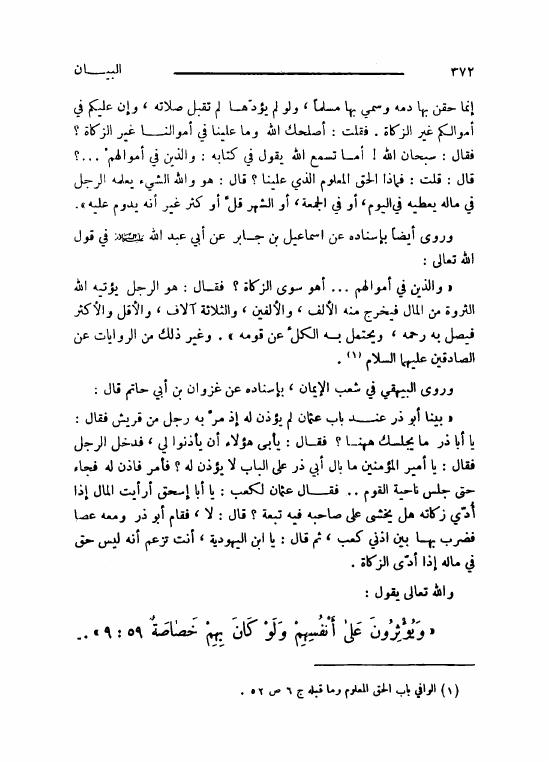 ٣٧٢ البيـــان
إنما حقن بها دمه وسمي بها مسلماً ، ولو لم يؤدّهـا لم تقبل صلاته ، وإن عليكم في
أموالكم غير الزكاة . فقلت : أصلحك الله وما علينا في أموالنـــا غير الزكاة ؟
فقال : سبحان الله ! أمـا تسمع الله يقول في كتابه : والذين في أموالهم ... ؟
قال : قلت : فماذا الحق المعلوم الذي علينا ؟ قال : هو والله الشيء يعلمه الرجل
في ماله يعطيه في اليوم، أو في الجمعة، أو الشهر قلّ أو كثر غير أنه يدوم عليه» .
وروى أيضاً بإسناده عن اسماعيل بن جـابر عن أبي عبد الله في قول
الله تعالى :
« والذين في أموالهم ... أهو سوى الزكاة ؟ فقـال : هو الرجل يؤتيه الله
الثروة من المال فيخرج منه الألف ، والألفين ، والثلاثة آلاف ، والأقل والأكثر
فيصل به رحمه ، ويحتمل بـه الكلّ عن قومه » . وغير ذلك من الروايات عن
الصادقين عليهما السلام (١) .
وروى البيهقي في شعب الإيمان ، بإسناده عن غزوان بن أبي حاتم قال :
« بينا أبو ذر عنـــد باب عثمان لم يؤذن له إذ مرّ به رجل من قريش فقال :
يا أبا ذر ما يجلسك ههنـا ؟ فقـال : يأبى هؤلاء أن يأذنوا لي ، فدخل الرجل
فقال : يا أمير المؤمنين ما بال أبي ذر على الباب لا يؤذن له ؟ فأمر فاذن له فجاء
حتى جلس ناحية القوم .. فقـــال عثمان لكعب : يا أبا إسحق أرأيت المال إذا
أُدّي زكاته هل يخشى على صاحبه فيه تبعة ؟ قال : لا ، فقام أبو ذر ومعه عصا
فضرب بهـا بين اذني كعب ، ثم قال : يا ابن اليهودية ، أنت تزعم أنه ليس حق
في ماله إذا أدّى الزكاة .
والله تعالى يقول :
« وَيُؤْثِرُونَ عَلىٰ أَنْفُسِهِمْ وَلَوْ كَانَ بِهِمْ خَصَاصَةٌ ٥٩ : ٩» ..
(١) الوافي باب الحق المعلوم وما قبله ج ٦ ص ٥٢ .